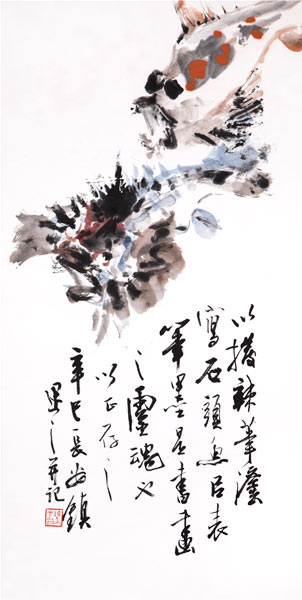 以潑辣筆
寫石頭魚以表
筆墨是書畫
之靈魂也
以正存之
辛巳長安鎮
之并記